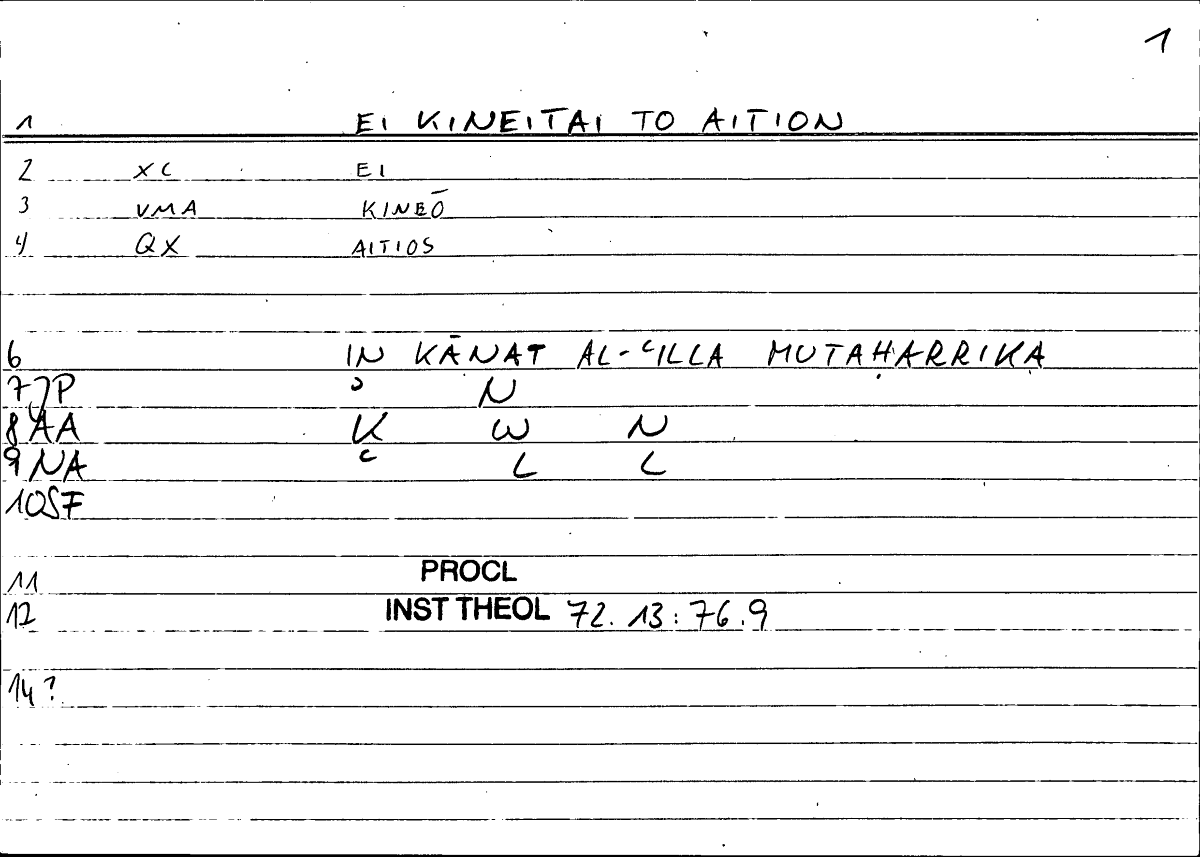 1
1 EI KINEITAI TO AITION
2 XC EI
3 VMA KINEŌ
4 QX AITIOS
6 IN KĀNAT AL-ʿILLA MUTAḤARRIKA
7 JP ʾ N
8 AA K W N
9 NA ʿ L L
10 SF
11 PROCL
12 INST THEOL 72.13:76.9
14 ?